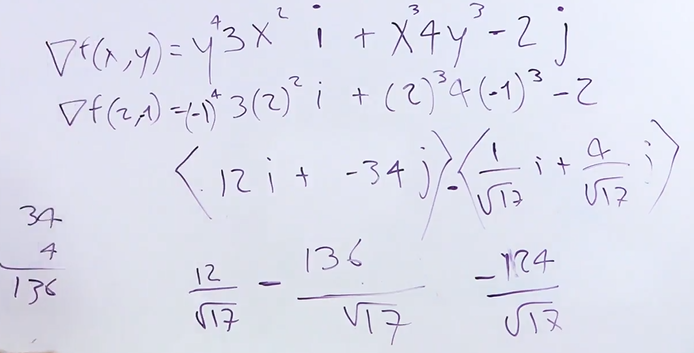 ∇f(x,y) = y⁴3x² i + x³4y³ - 2 j
∇f(2,1) = (-1)⁴ 3(2)² i + (2)³ 4(-1)³ - 2
⟨12 i + -34 j⟩ · ⟨1/√17 i + 4/√17 j⟩
34
4
136
12/√17 - 136/√17 -124/√17